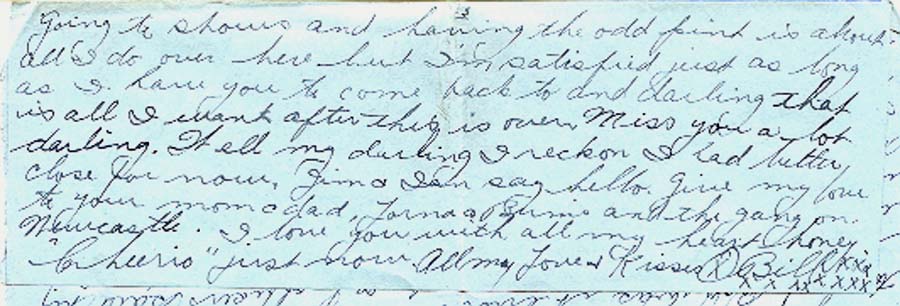 3
Going to shows and having the odd pint is about
all I do over here but I'm satisfied just as long
as I have you to come back to and darling that
is all I want after this is over. Miss you a lot
darling. Well my darling I reckon I had better
close for now. Jim & Ian say hello. Give my love
to your mom & dad, Lorna & and the gang on
Newcastle. I love you with all my heart honey
"Cheerio" just now All my Love & Kisses Bill XXX
X X XX XXX